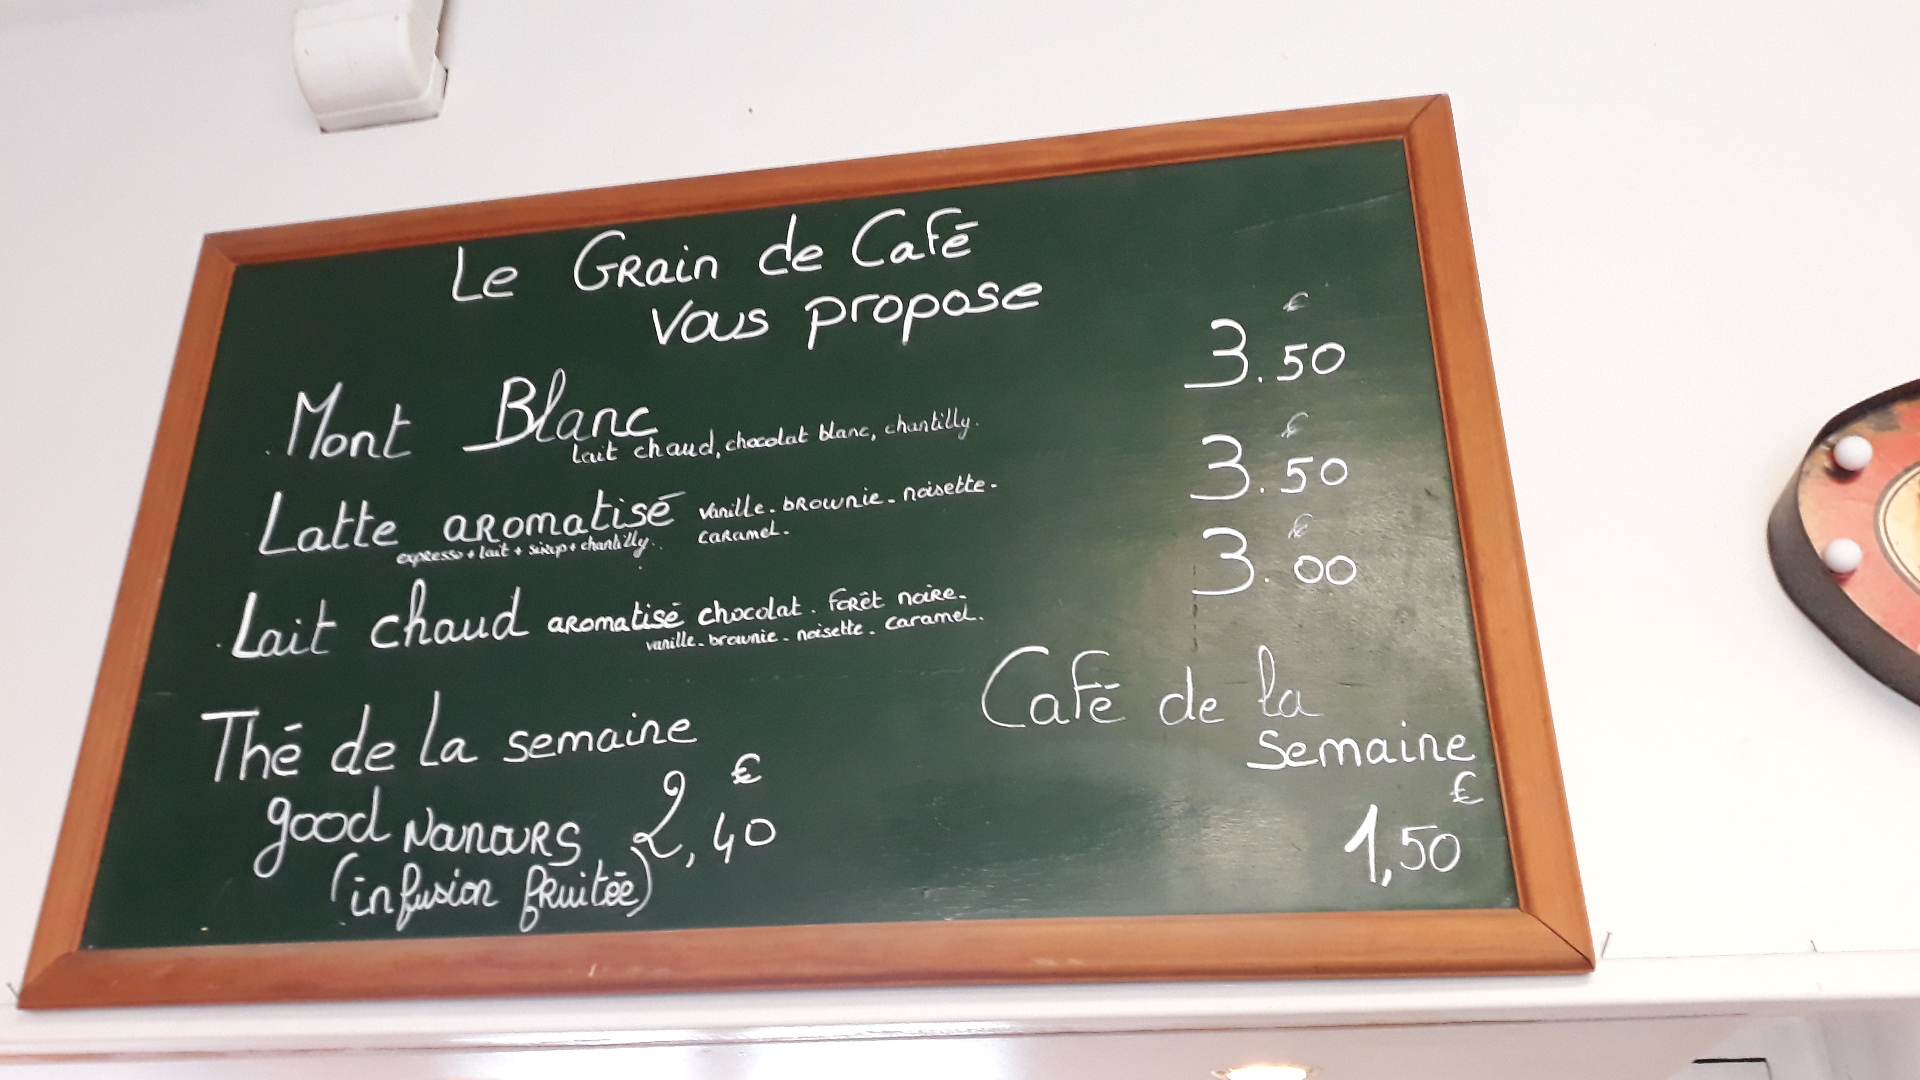 Le Grain de Café
Vous propose
Mont Blanc 3.50 €
lait chaud, chocolat blanc, chantilly.
Latte aromatisé vanille - brownie - noisette - 3.50 €
caramel -
expresso + lait + sirop + chantilly.
Lait chaud aromatisé chocolat. Forêt noire - 3.00 €
vanille - brownie - noisette - caramel.
Thé de la semaine
good Nanours 2,40 €
(infusion fruitée)
Café de la
Semaine
1,50 €